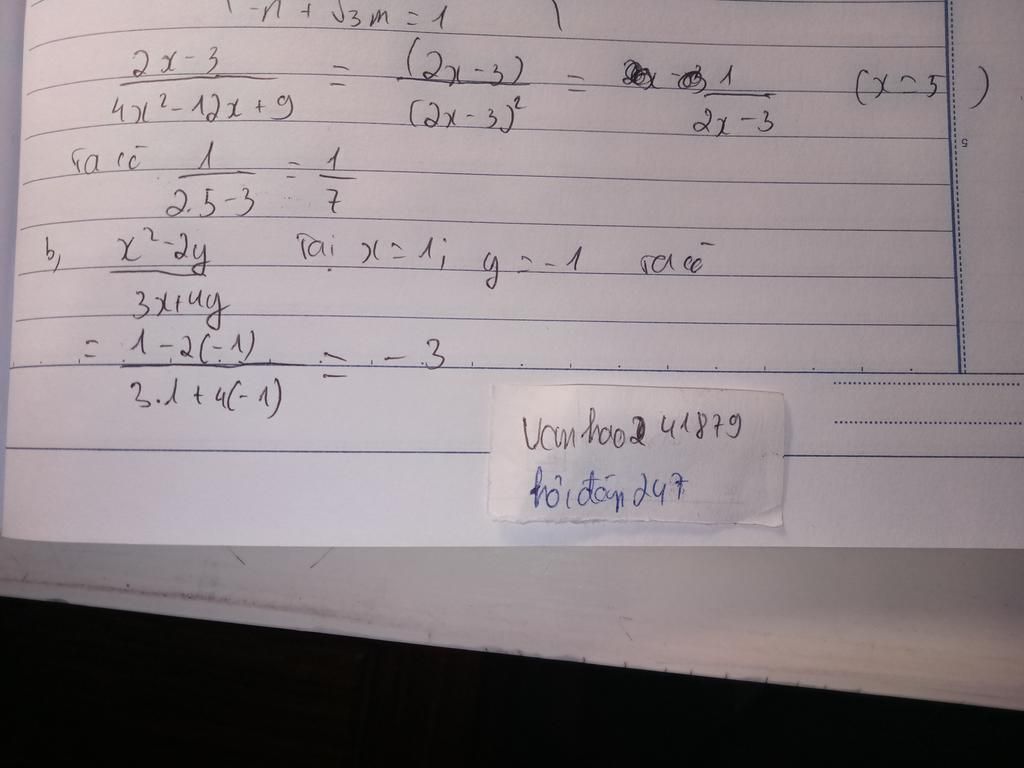 -n + √3 m = 1
2x-3 / 4x²-12x+9 = (2x-3) / (2x-3)² = 1 / 2x-3 (x=5)
Ta có 1 / 2.5-3 = 1 / 7
b, x²-2y / 3x+4y Tại x=1; y=-1 ta có
= 1-2(-1) / 3.1+4(-1) = -3
vanhao2 41879
hỏi đáp 247